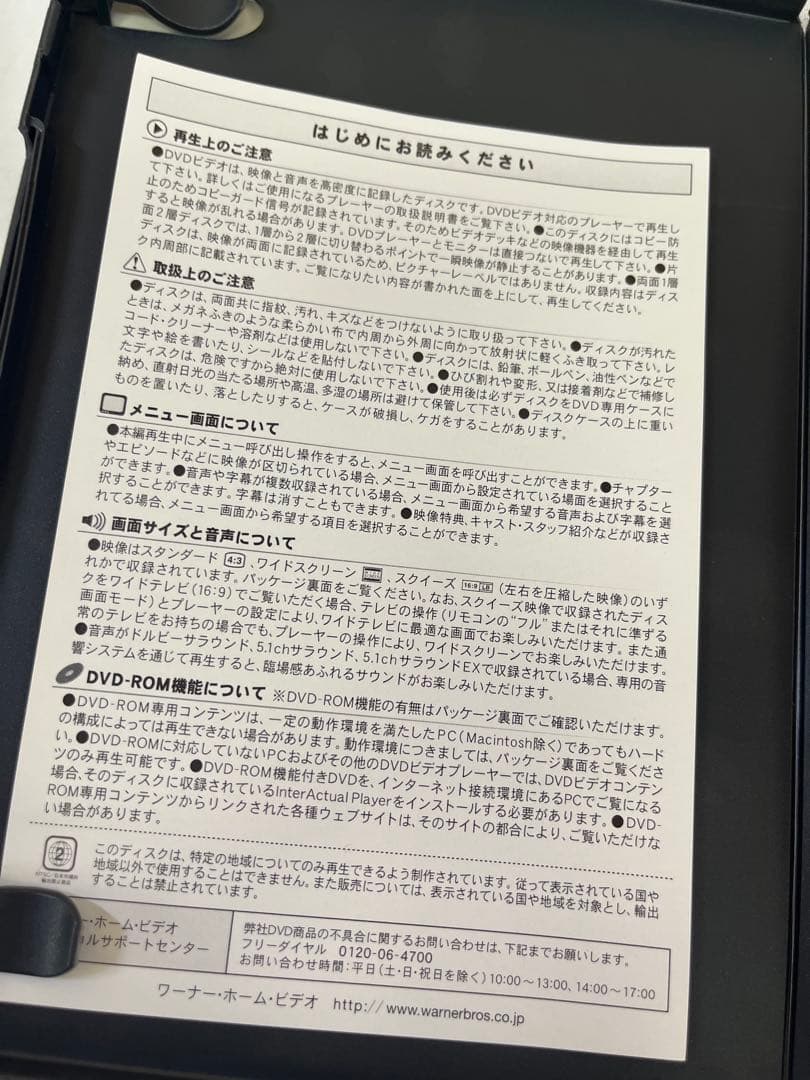 はじめにお読みください
再生上のご注意
●DVDビデオは、映像と音声を高密度に記録したディスクです。DVDビデオ対応のプレーヤーで再生し
て下さい。詳しくはご使用になるプレーヤーの取扱説明書をご覧下さい。●このディスクにはコピー防
止のためコピーガード信号が記録されています。そのためビデオデッキなどの映像機器を経由して再生
すると映像が乱れる場合があります。DVDプレーヤーとモニターは直接つないで再生して下さい。●片
面2層ディスクでは、1層から2層に切り替わるポイントで一瞬映像が静止することがあります。●両面1層
ディスクは、映像が両面に記録されているため、ピクチャーレーベルではありません。収録内容はディス
ク内周部に記載されています。ご覧になりたい内容が書かれた面を上にして、再生してください。
取扱上のご注意
●ディスクは、両面共に指紋、汚れ、キズなどをつけないように取り扱って下さい。●ディスクが汚れた
ときは、メガネふきのような柔らかい布で内周から外周に向かって放射状に軽くふき取って下さい。レ
コード・クリーナーや溶剤などは使用しないで下さい。●ディスクには、鉛筆、ボールペン、油性ペンなどで
文字や絵を書いたり、シールなどを貼付しないで下さい。●ひび割れや変形、又は接着剤などで補修し
たディスクは、危険ですから絶対に使用しないで下さい。●使用後は必ずディスクをDVD専用ケースに
納め、直射日光の当たる場所や高温、多湿の場所は避けて保管して下さい。●ディスクケースの上に重い
ものを置いたり、落としたりすると、ケースが破損し、ケガをすることがあります。
メニュー画面について
●本編再生中にメニュー呼び出し操作をすると、メニュー画面を呼び出すことができます。●チャプター
やエピソードなどに映像が区切られている場合、メニュー画面から設定されている場面を選択すること
ができます。●音声や字幕が複数収録されている場合、メニュー画面から希望する音声および字幕を選
択することができます。字幕は消すこともできます。●映像特典、キャスト・スタッフ紹介などが収録さ
れてる場合、メニュー画面から希望する項目を選択することができます。
画面サイズと音声について
●映像はスタンダード 4:3 、ワイドスクリーン 、スクイーズ 16:9 LB （左右を圧縮した映像）のいず
れかで収録されています。パッケージ裏面をご覧ください。なお、スクイーズ映像で収録されたディス
クをワイドテレビ（16：9）でご覧いただく場合、テレビの操作（リモコンの"フル"またはそれに準ずる
画面モード）とプレーヤーの設定により、ワイドテレビに最適な画面でお楽しみいただけます。また通
常のテレビをお持ちの場合でも、プレーヤーの操作により、ワイドスクリーンでお楽しみいただけます。
●音声がドルビーサラウンド、5.1chサラウンド、5.1chサラウンドEXで収録されている場合、専用の音
響システムを通じて再生すると、臨場感あふれるサウンドがお楽しみいただけます。
DVD-ROM機能について ※DVD-ROM機能の有無はパッケージ裏面でご確認いただけます。
●DVD-ROM専用コンテンツは、一定の動作環境を満たしたPC（Macintosh除く）であってもハード
の構成によっては再生できない場合があります。動作環境につきましては、パッケージ裏面をご覧くださ
い。●DVD-ROMに対応していないPCおよびその他のDVDビデオプレーヤーでは、DVDビデオコンテン
ツのみ再生可能です。●DVD-ROM機能付きDVDを、インターネット接続環境にあるPCでご覧になる
場合、そのディスクに収録されているInterActual Playerをインストールする必要があります。●DVD-
ROM専用コンテンツからリンクされた各種ウェブサイトは、そのサイトの都合により、ご覧いただけな
い場合があります。
2
このディスクは、特定の地域についてのみ再生できるよう制作されています。従って表示されている国や
地域以外で使用することはできません。また販売については、表示されている国や地域を対象とし、輸出
することは禁止されています。
ー・ホーム・ビデオ
ルサポートセンター
弊社DVD商品の不具合に関するお問い合わせは、下記までお願いします。
フリーダイヤル 0120-06-4700
お問い合わせ時間：平日（土・日・祝日を除く）10：00～13：00、14：00～17：00
ワーナー・ホーム・ビデオ http://www.warnerbros.co.jp